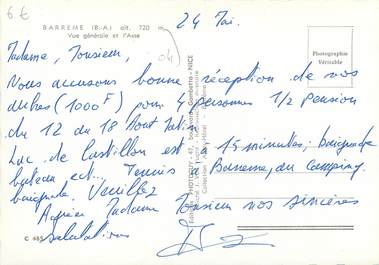 6 €
BARREME (B.-A.) alt. 720 m
Vue générale et l'Asse
04
24 Mai.
Photographie
Véritable
Madame, Monsieur,
Nous accusons bonne réception de nos
arrhes (1000F) pour 4 personnes 1/2 Pension
du 12 du 18 Aout
Lac de Castillon est à 15 minutes, baignade
bateau ect... Tennis à Barreme, au Camping
baignade. Veuillez
Agréer Madame Monsieur nos sincères
salutations
C 485